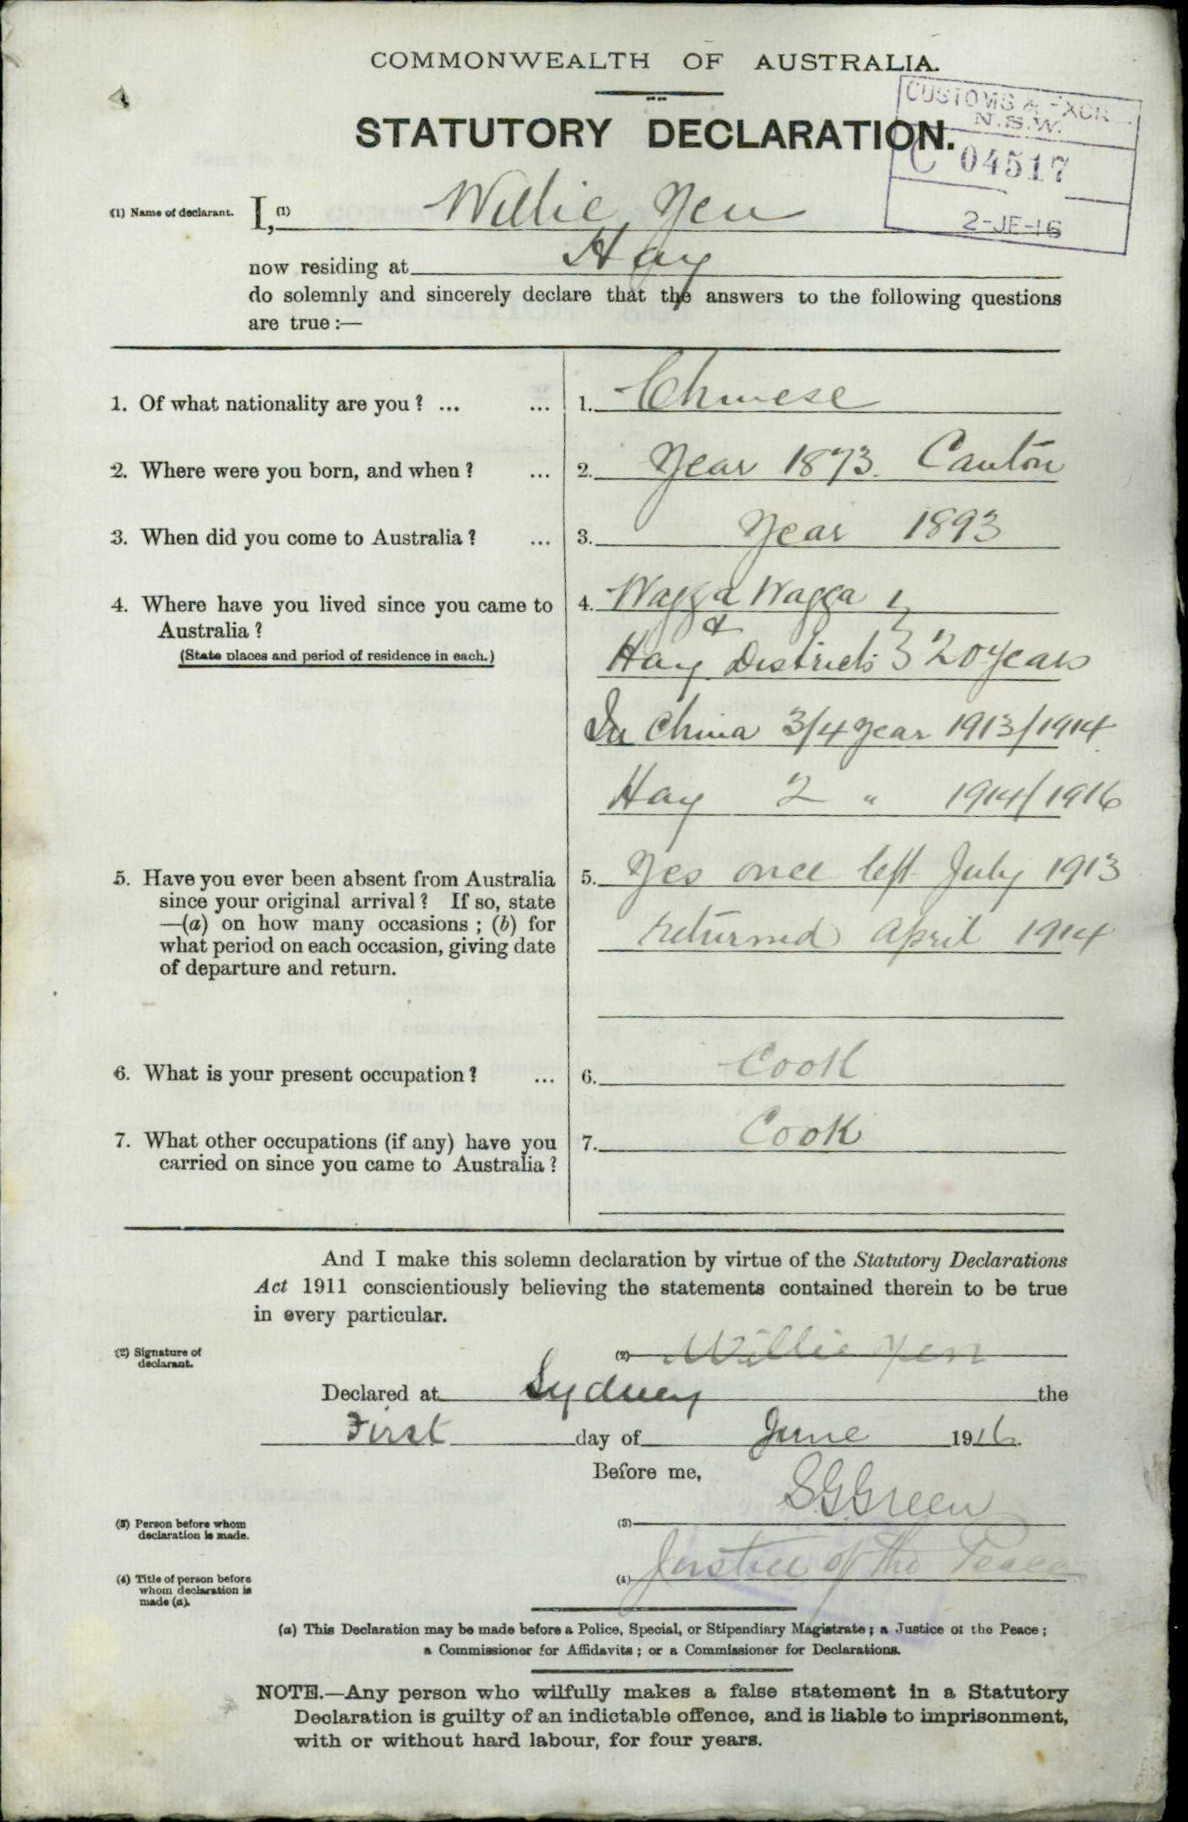 COMMONWEALTH OF AUSTRALIA.
CUSTOMS & EXCR
N.S.W.
C 04517
2-JE-16
STATUTORY DECLARATION.
(1) Name of declarant. I, (1) Willie Yen
now residing at Hay
do solemnly and sincerely declare that the answers to the following questions
are true:—
1. Of what nationality are you? ... ... 1. Chinese
2. Where were you born, and when? ... 2. Year 1873. Canton
3. When did you come to Australia? ... 3. Year 1893
4. Where have you lived since you came to 4. Wagga Wagga
Australia? &
(State places and period of residence in each.) Hay Districts } 20 years
In China 3/4 year 1913/1914
Hay 2 " 1914/1916
5. Have you ever been absent from Australia 5. Yes once left July 1913
since your original arrival? If so, state
—(a) on how many occasions; (b) for returned April 1914
what period on each occasion, giving date
of departure and return.
6. What is your present occupation? ... 6. Cook
7. What other occupations (if any) have you 7. Cook
carried on since you came to Australia?
And I make this solemn declaration by virtue of the Statutory Declarations
Act 1911 conscientiously believing the statements contained therein to be true
in every particular.
(2) Signature of declarant. (2) Willie Yen
Declared at Sydney the
First day of June 1916.
Before me,
S G Green
(3) Person before whom declaration is made. (3)
(4) Title of person before whom declaration is made (a). (4) Justice of the Peace
(a) This Declaration may be made before a Police, Special, or Stipendiary Magistrate; a Justice of the Peace;
a Commissioner for Affidavits; or a Commissioner for Declarations.
NOTE.—Any person who wilfully makes a false statement in a Statutory
Declaration is guilty of an indictable offence, and is liable to imprisonment,
with or without hard labour, for four years.